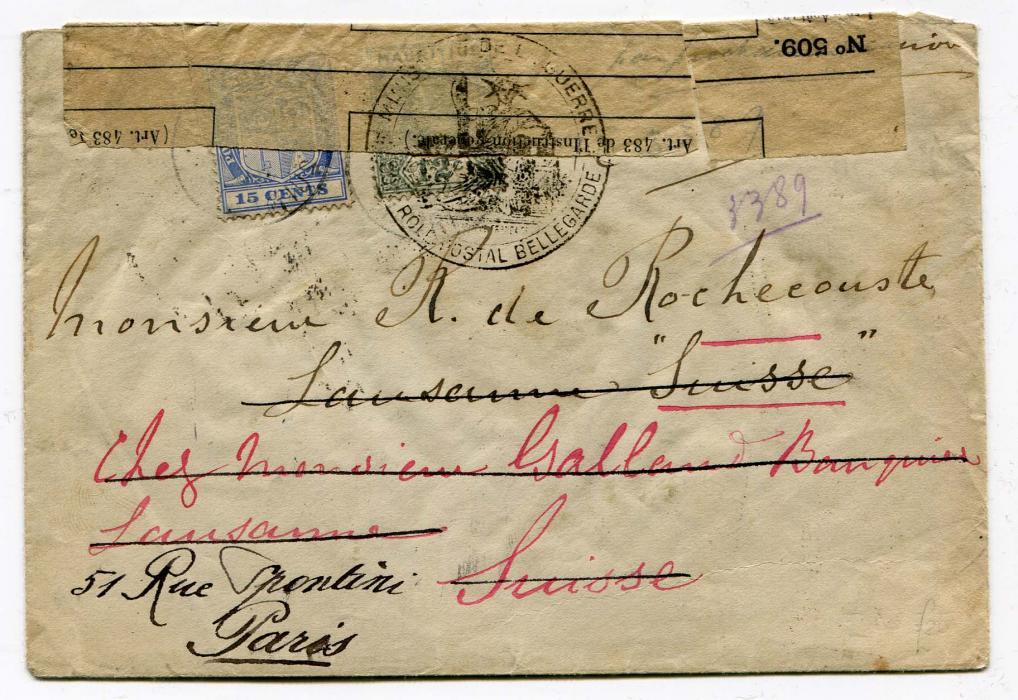 Nº 509.
MAURITIUS
MINIS DE LA GUERRE
(Art. 483 de
(Art. 483 de l'Instruction générale.)
15 CENTS
POSTAL BELLEGARDE
1389
Monsieur R. de Rochecouste
Lausanne "Suisse"
Chez Monsieur Galland Banquier
Lausanne
Suisse
51 Rue Spontini
Paris